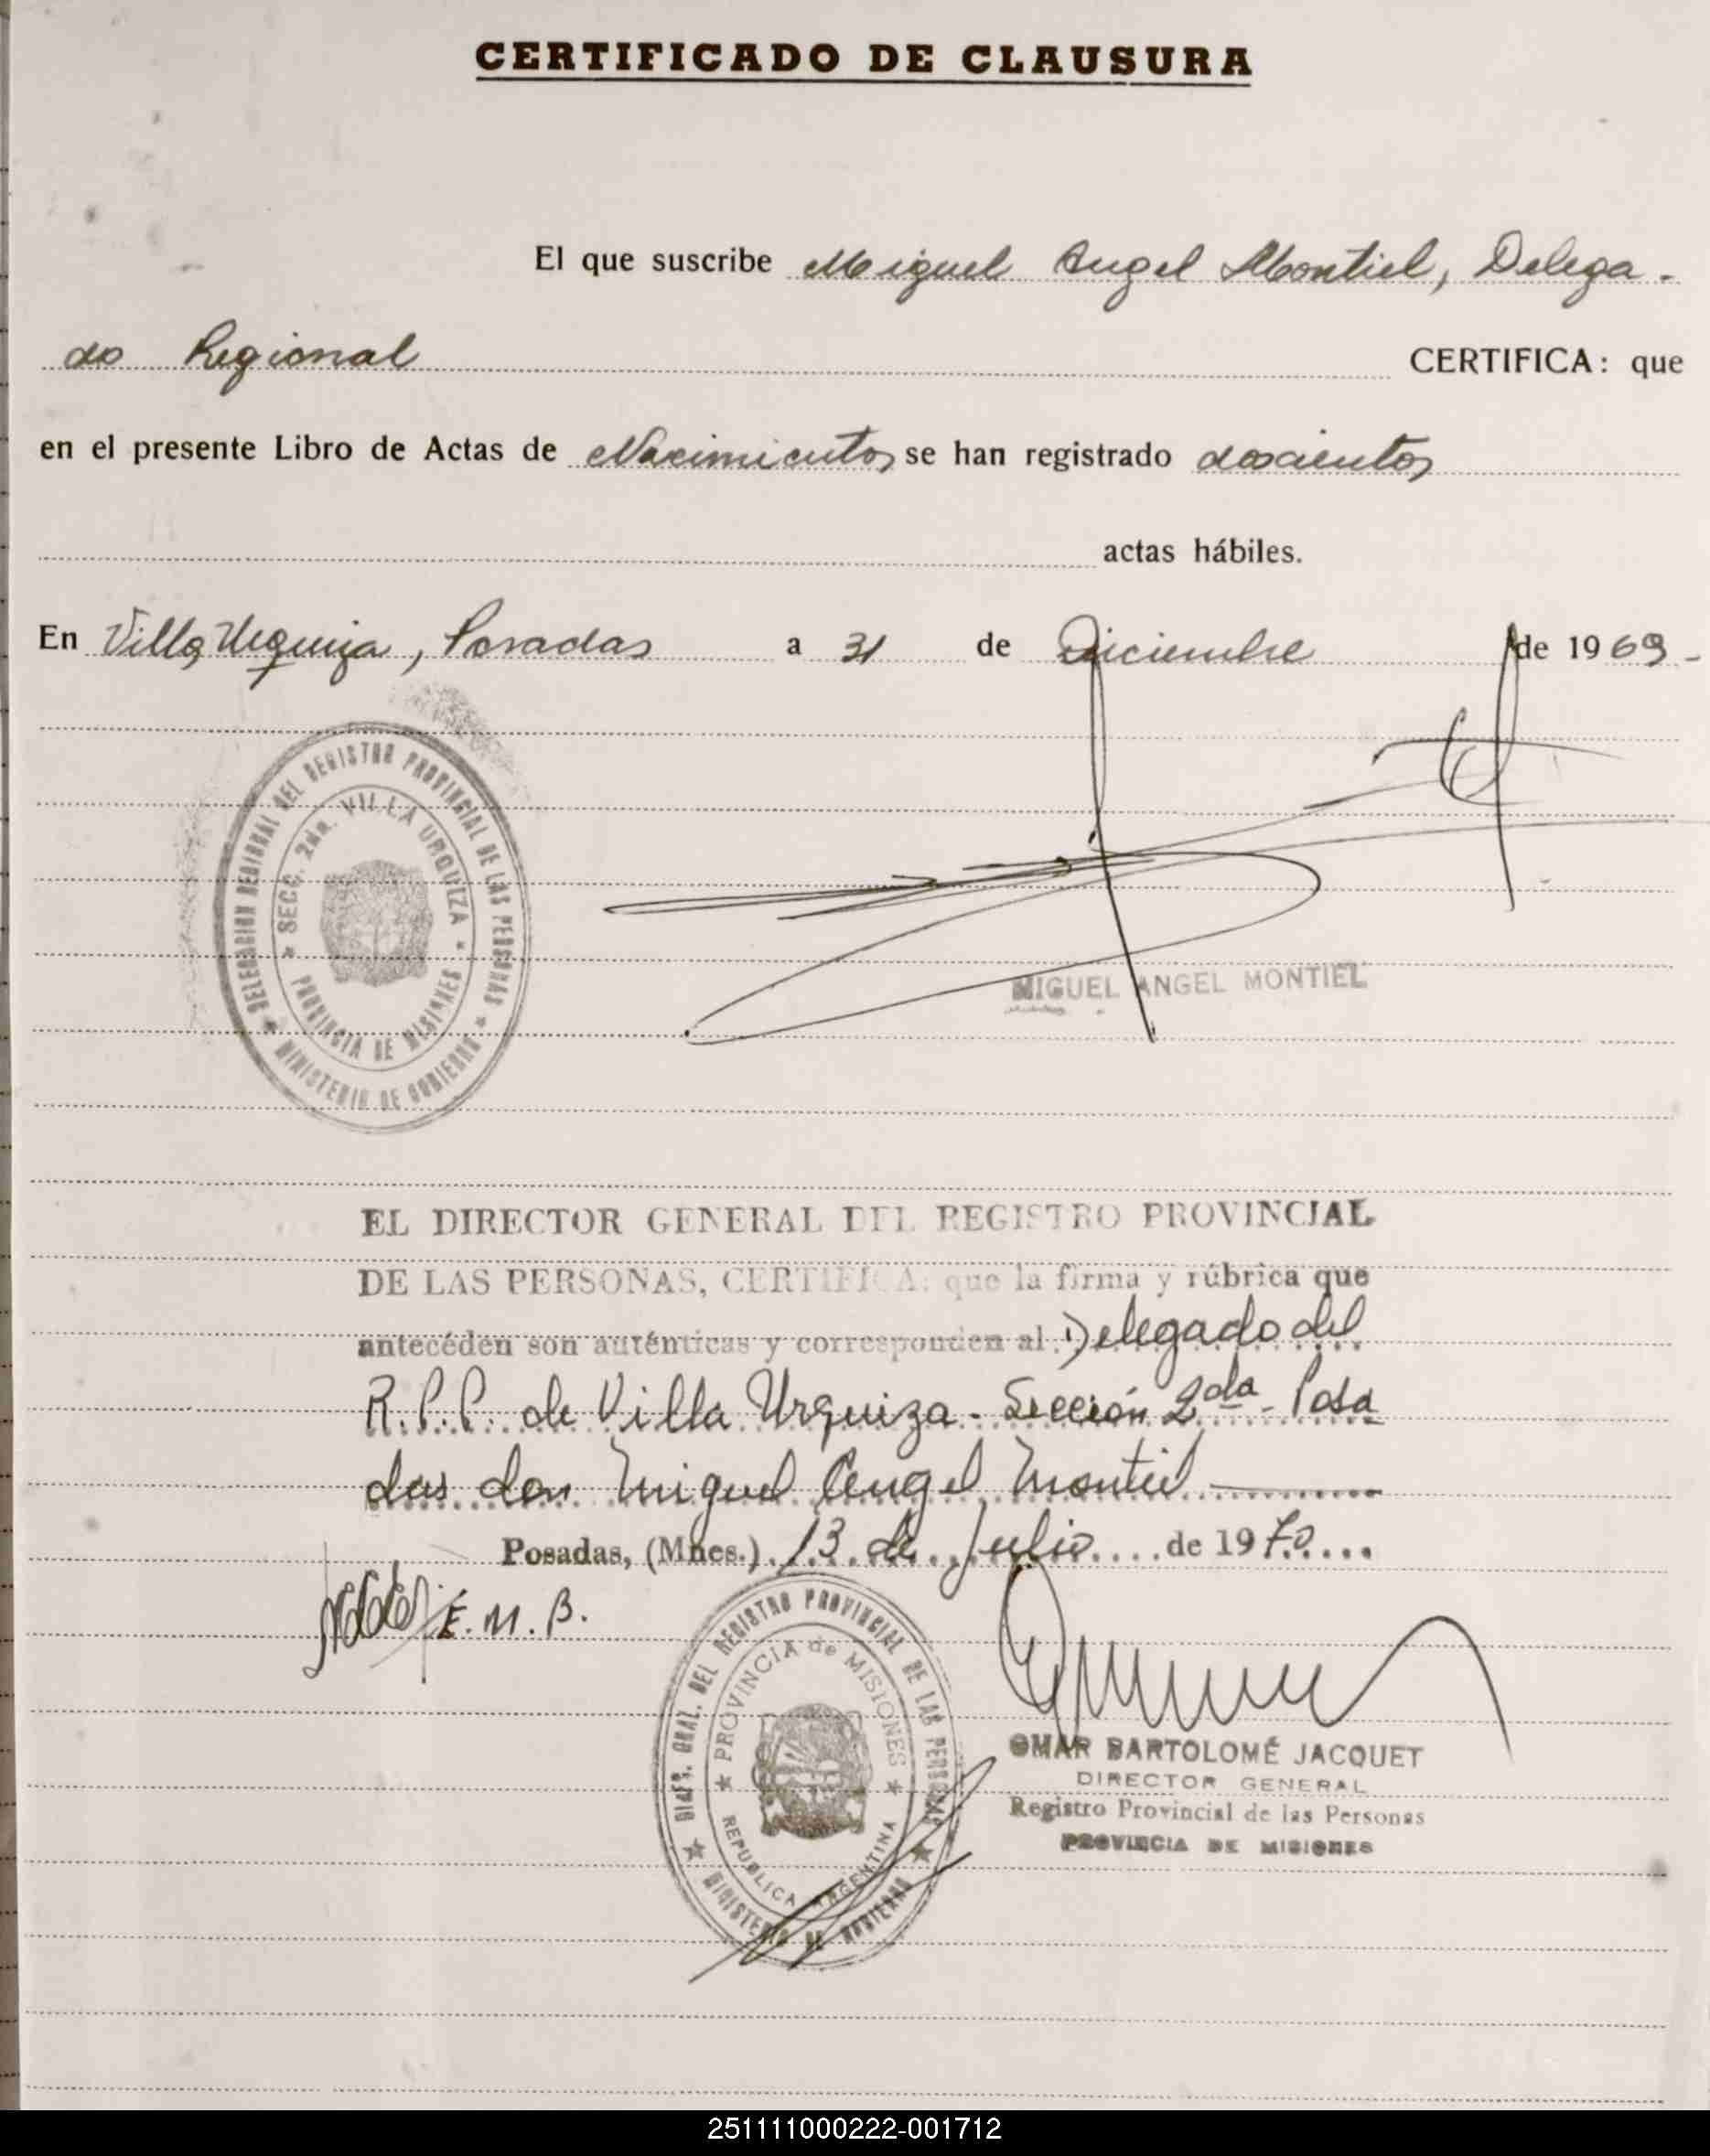 CERTIFICADO DE CLAUSURA
El que suscribe Miguel Angel Montiel, Delega-
do Regional CERTIFICA: que
en el presente Libro de Actas de Nacimientos se han registrado doscientos
actas hábiles.
En Villa Urquiza, Posadas a 31 de Diciembre de 1969-
DELEGACION REGIONAL DEL REGISTRO PROVINCIAL DE LAS PERSONAS
MINISTERIO DE GOBIERNO
SECC. 2da. VILLA URQUIZA
PROVINCIA DE MISIONES
MIGUEL ANGEL MONTIEL
EL DIRECTOR GENERAL DEL REGISTRO PROVINCIAL
DE LAS PERSONAS, CERTIFICA: que la firma y rúbrica que
antecéden son auténticas y corresponden al Delegado del
R.P.P. de Villa Urquiza - Sección 2da - Posa
das don Miguel Angel Montiel
Posadas, (Mnes.) 13 de Julio de 1970
E. M. B.
DIREC. GRAL. DEL REGISTRO PROVINCIAL DE LAS PERSONAS
MINISTERIO DE GOBIERNO
PROVINCIA de MISIONES
REPUBLICA ARGENTINA
OMAR BARTOLOMÉ JACQUET
DIRECTOR GENERAL
Registro Provincial de las Personas
PROVINCIA DE MISIONES
251111000222-001712